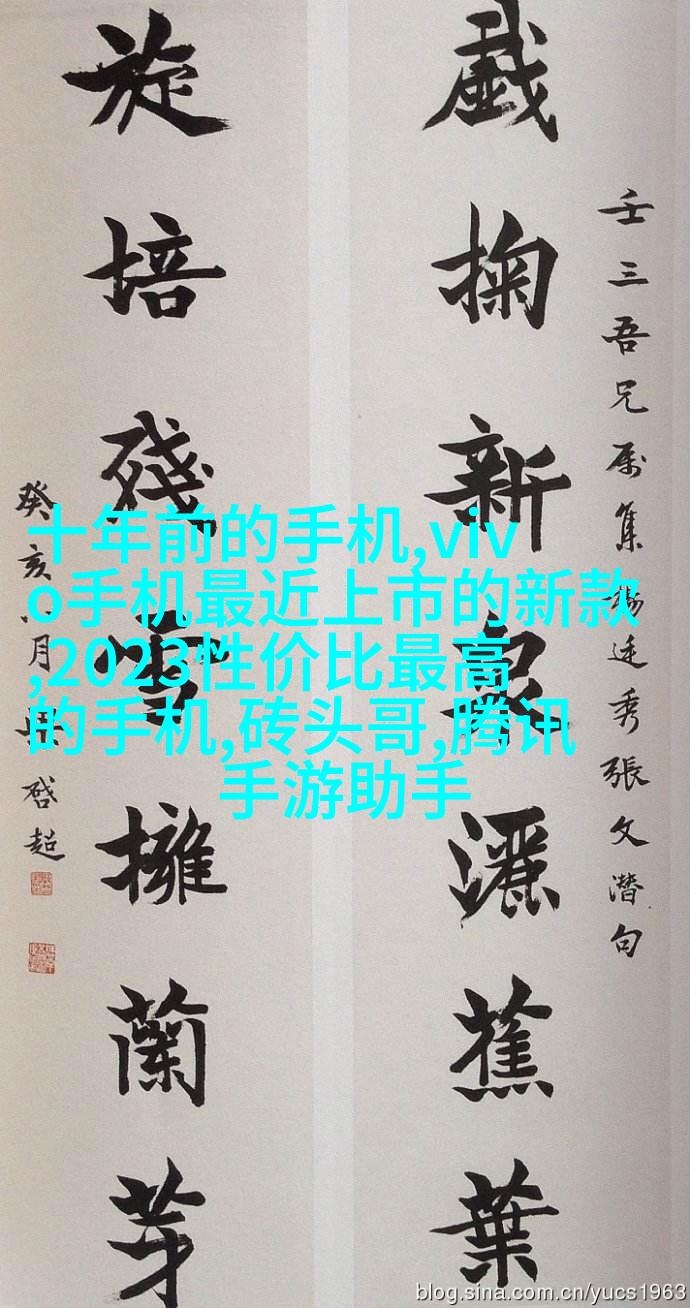 壬三吾兄属集楊廷秀張文潛句
戲掬新泉灑蕉葉
旋培殘雪擁蘭芽
癸亥八月梁啓超
十年前的手机,viv
o手机最近上市的新款
,2023性价比最高
的手机,砖头哥,腾讯
手游助手
blog.sina.com.cn/yucs1963